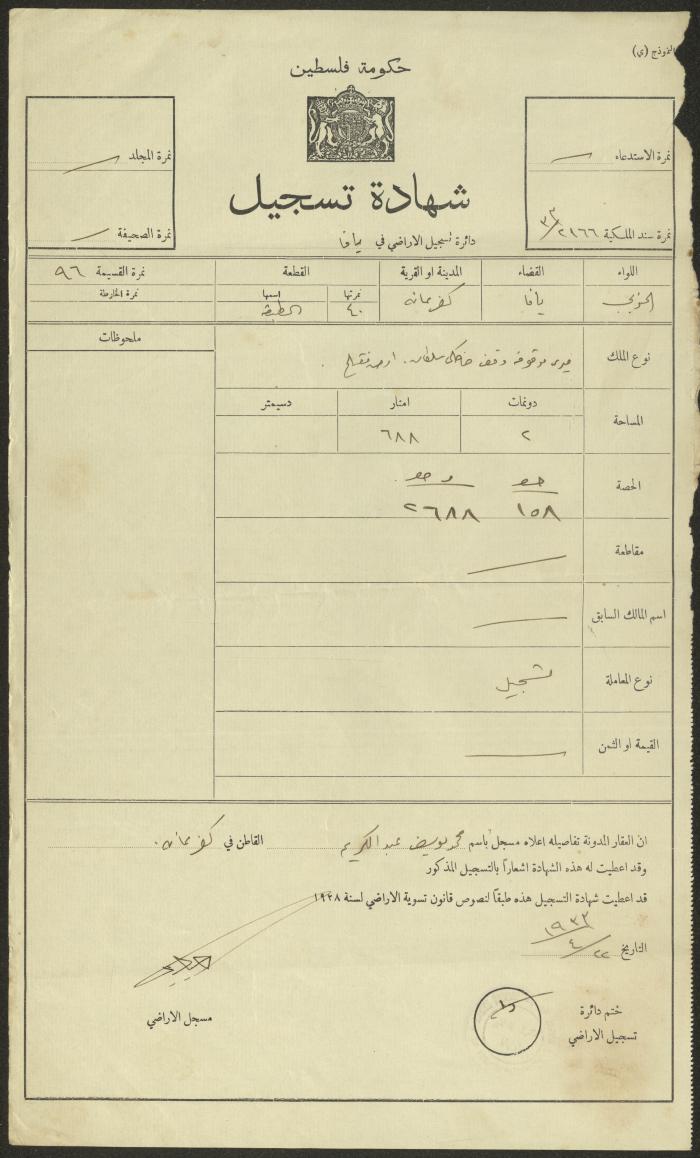 النموذج (ي)
حكومة فلسطين
نمرة الاستدعاء
نمرة سند الملكية ٢١٦٦ / ٣٣
نمرة المجلد
نمرة الصحيفة
شهادة تسجيل
دائرة تسجيل الاراضي في يافا
اللواء القضاء المدينة او القرية القطعة نمرة القسيمة ٩٦
الجنوبي يافا كفرعانه نمرتها ٤٠ اسمها نمرة الخارطة
ملحوظات
نوع الملك ميري موقوفه وقف خاصكي سلطان.
المساحة
دونمات امتار دسيمتر
٢ ٦٨٨
الحصة
حصه من حصه
١٥٨ ٢٦٨٨
مقاطعة
اسم المالك السابق
نوع المعاملة تسجيل
القيمة او الثمن
ان العقار المدونة تفاصيله اعلاه مسجل باسم محمد يوسف عبد الكريم القاطن في كفرعانه.
وقد اعطيت له هذه الشهادة اشعاراً بالتسجيل المذكور
قد اعطيت شهادة التسجيل هذه طبقاً لنصوص قانون تسوية الاراضي لسنة ١٩٢٨
التاريخ ٢٢ / ٤ / ١٩٣٣
ختم دائرة
تسجيل الاراضي
مسجل الاراضي